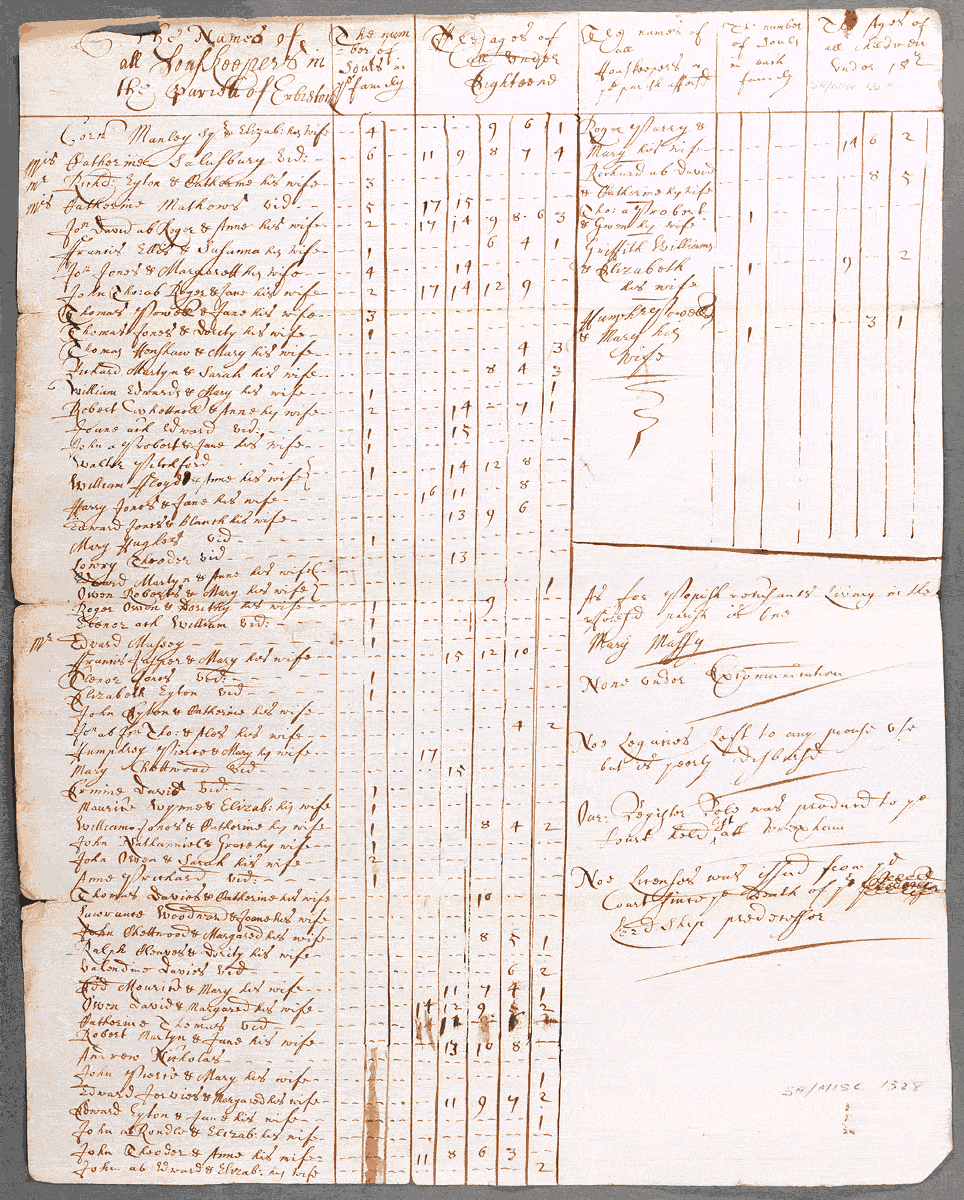 The Names of
all Houskeepers in
the Parish of Erbistow
The num
ber of
Souls in
ye family
The ages of
all under
Eighteene
The names of
all
Houskeepers in
ye parish
The number
of Souls
in each
family
The Ages of
all Children
under 18
Manley & Elizab: his wife - 4 - 9 6 1
Mrs Catherine Salusbury vid: - 6 - 11 9 8 7 4
Mr Richd: Eyton & Catherine his wife - 3
Mrs Catherine Mathews vid - 5 - 17 15
Jon David ab Roger & Anne his wife - 2 - 17 14 9 8 6 3
Francis Elles & Susanna his wife - 1 - 6 4 1
Jon Jones & Margarett his wife - 4 - 14
John Tho: ab Roger & Jane his wife - 2 - 17 14 12 9
Thomas Powell & Jane his wife - 3
Thomas Jones & Dority his wife - 1
Thomas Henshaw & Mary his wife - 4 3
Richard Martyn & Sarah his wife - 8 4 3
William Edwards & Mary his wife - 1 - 1
Robert & Anne his wife - 2 - 14 - 7 1
Jane ach Edward vid: - 1 - 15
John a Probert & Jane his wife - 1
Walter Pitchford
William Floyd & Anne his wife - 1 - 14 12 8
Harry Jones & Jane his wife - 16 11 - 8
Edward Jones & Blanch his wife - 13 9 6
Mary Hughes vid - 1
Lowry Theoder vid - 13
Edward Martyn & Anne his wife
Owen Roberts & Mary his wife - 1
Roger Owen & Dorithy his wife - 1 - 9
Elenor ach William vid: - 1
Mr Edward Massey - 1
Francis Jasper & Mary his wife - 15 12 10
Elenor Jones vid: - 1
Elizabeth Eyton vid - 1
John Eyton & Catherine his wife
Jon ab Jon Tho: & Ales his wife - 4 2
Humphrey Pierce & Mary his wife - 17
Mary Chettwood vid - 15
Ermine David vid: - 1
Maurice Wynne & Elizab: his wife - 1
William Jones & Catherine his wife - 1 - 8 4 2
John Nathanniel & Grace his wife - 1
John Owen & Sarah his wife - 2
Anne Prichard vid: - 1
Thomas Davies & Catherine his wife - 10
Lawrance Woodward & Joane his wife
John Chettwood & Margared his wife - 8 5 1
Ralph & Dority his wife
Valendine Davies vid - 6 2
Edd Mourice & Mary his wife - 11 7 4 1
Owen David & Margared his wife - 14 12 9 2
Catherine Thomas vid
Robert Martyn & Jane his wife - 13 10 8
Andrew Nicholas
John Pierce & Mary his wife - 1
Edward Jervies & Margared his wife - 11 9 7 2
Edward Eyton & Jane his wife - 1
John ab Rondle & Elizab: his wife
John Theoder & Anne his wife - 11 8 6 3
John ab Edward & Elizab: his wife - 2
Roger Parry &
Mary his wife - 14 6 2
Richard ab David
& Catherine his wife - 8 5
Tho: a Probert
& Gwen his wife - 1
Griffith Williams
& Elizabeth - 1 - 9 - 2
his wife
Humphrey Powell
& Mary his - 1 - 3 1
Wife
As for Popish recusants Living in the
sd parish is one
Mary Massy
None under Excommunication
Noe Legacies Left to any pious use
but is yearly disburst
Our Register was produced to ye
Court held att Wrexham
Noe Licenses was issued from yd
Court since ye death of ye
Lordship predecessor
SA/MISC 1328